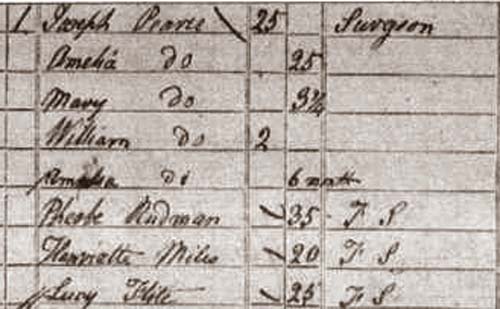 1 Joseph Pearce 25 Surgeon
Amelia do 25
Mary do 3¾
William do 2
Amelia do 6 month
Phoebe Rudman 35 F S
Henriette Miles 20 F S
Lucy 25 F S